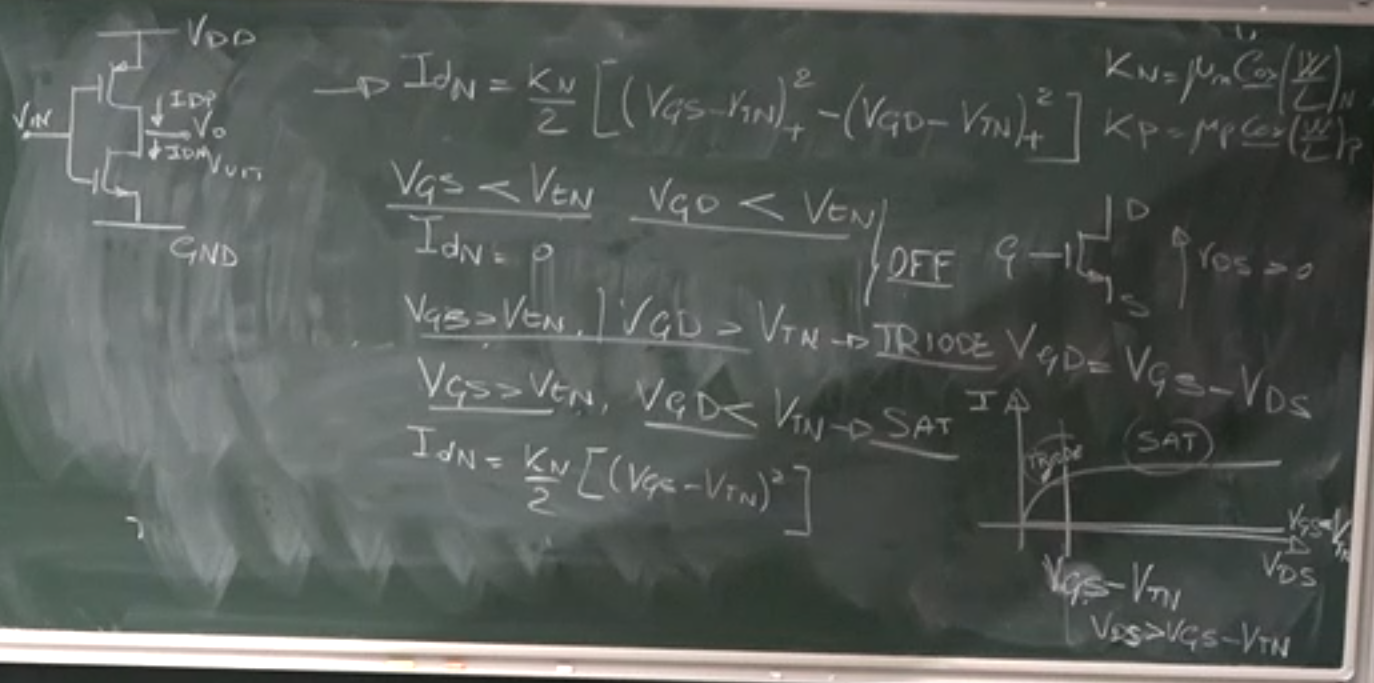 VDD
VIN
IDP
Vo
IDN
VOUT
GND
→ IdN = KN/2 [(VGS-VTN)₊² - (VGD-VTN)₊²]
KN = μn Cox (W/L)N
KP = μp Cox (W/L)P
VGS < VTN VGD < VTN
IdN = 0
OFF
G
D
S
VDS > 0
VGS > VTN, VGD > VTN → TRIODE VGD = VGS - VDS
VGS > VTN, VGD < VTN → SAT
IdN = KN/2 [(VGS - VTN)²]
I
TRIODE
SAT
VDS
VGS - VTN
VDS > VGS - VTN